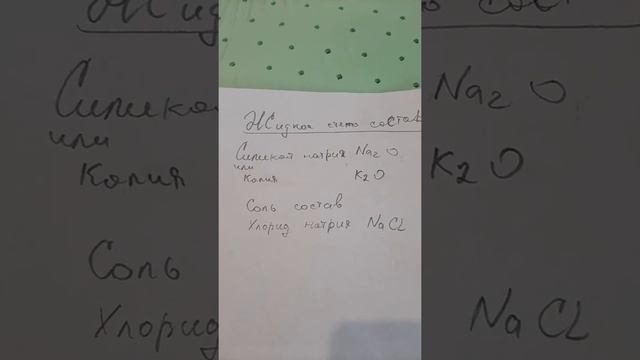 состав
Силикат натрия Na2 O
или
Калия K2 O
Соль состав
Хлорид натрия NaCl